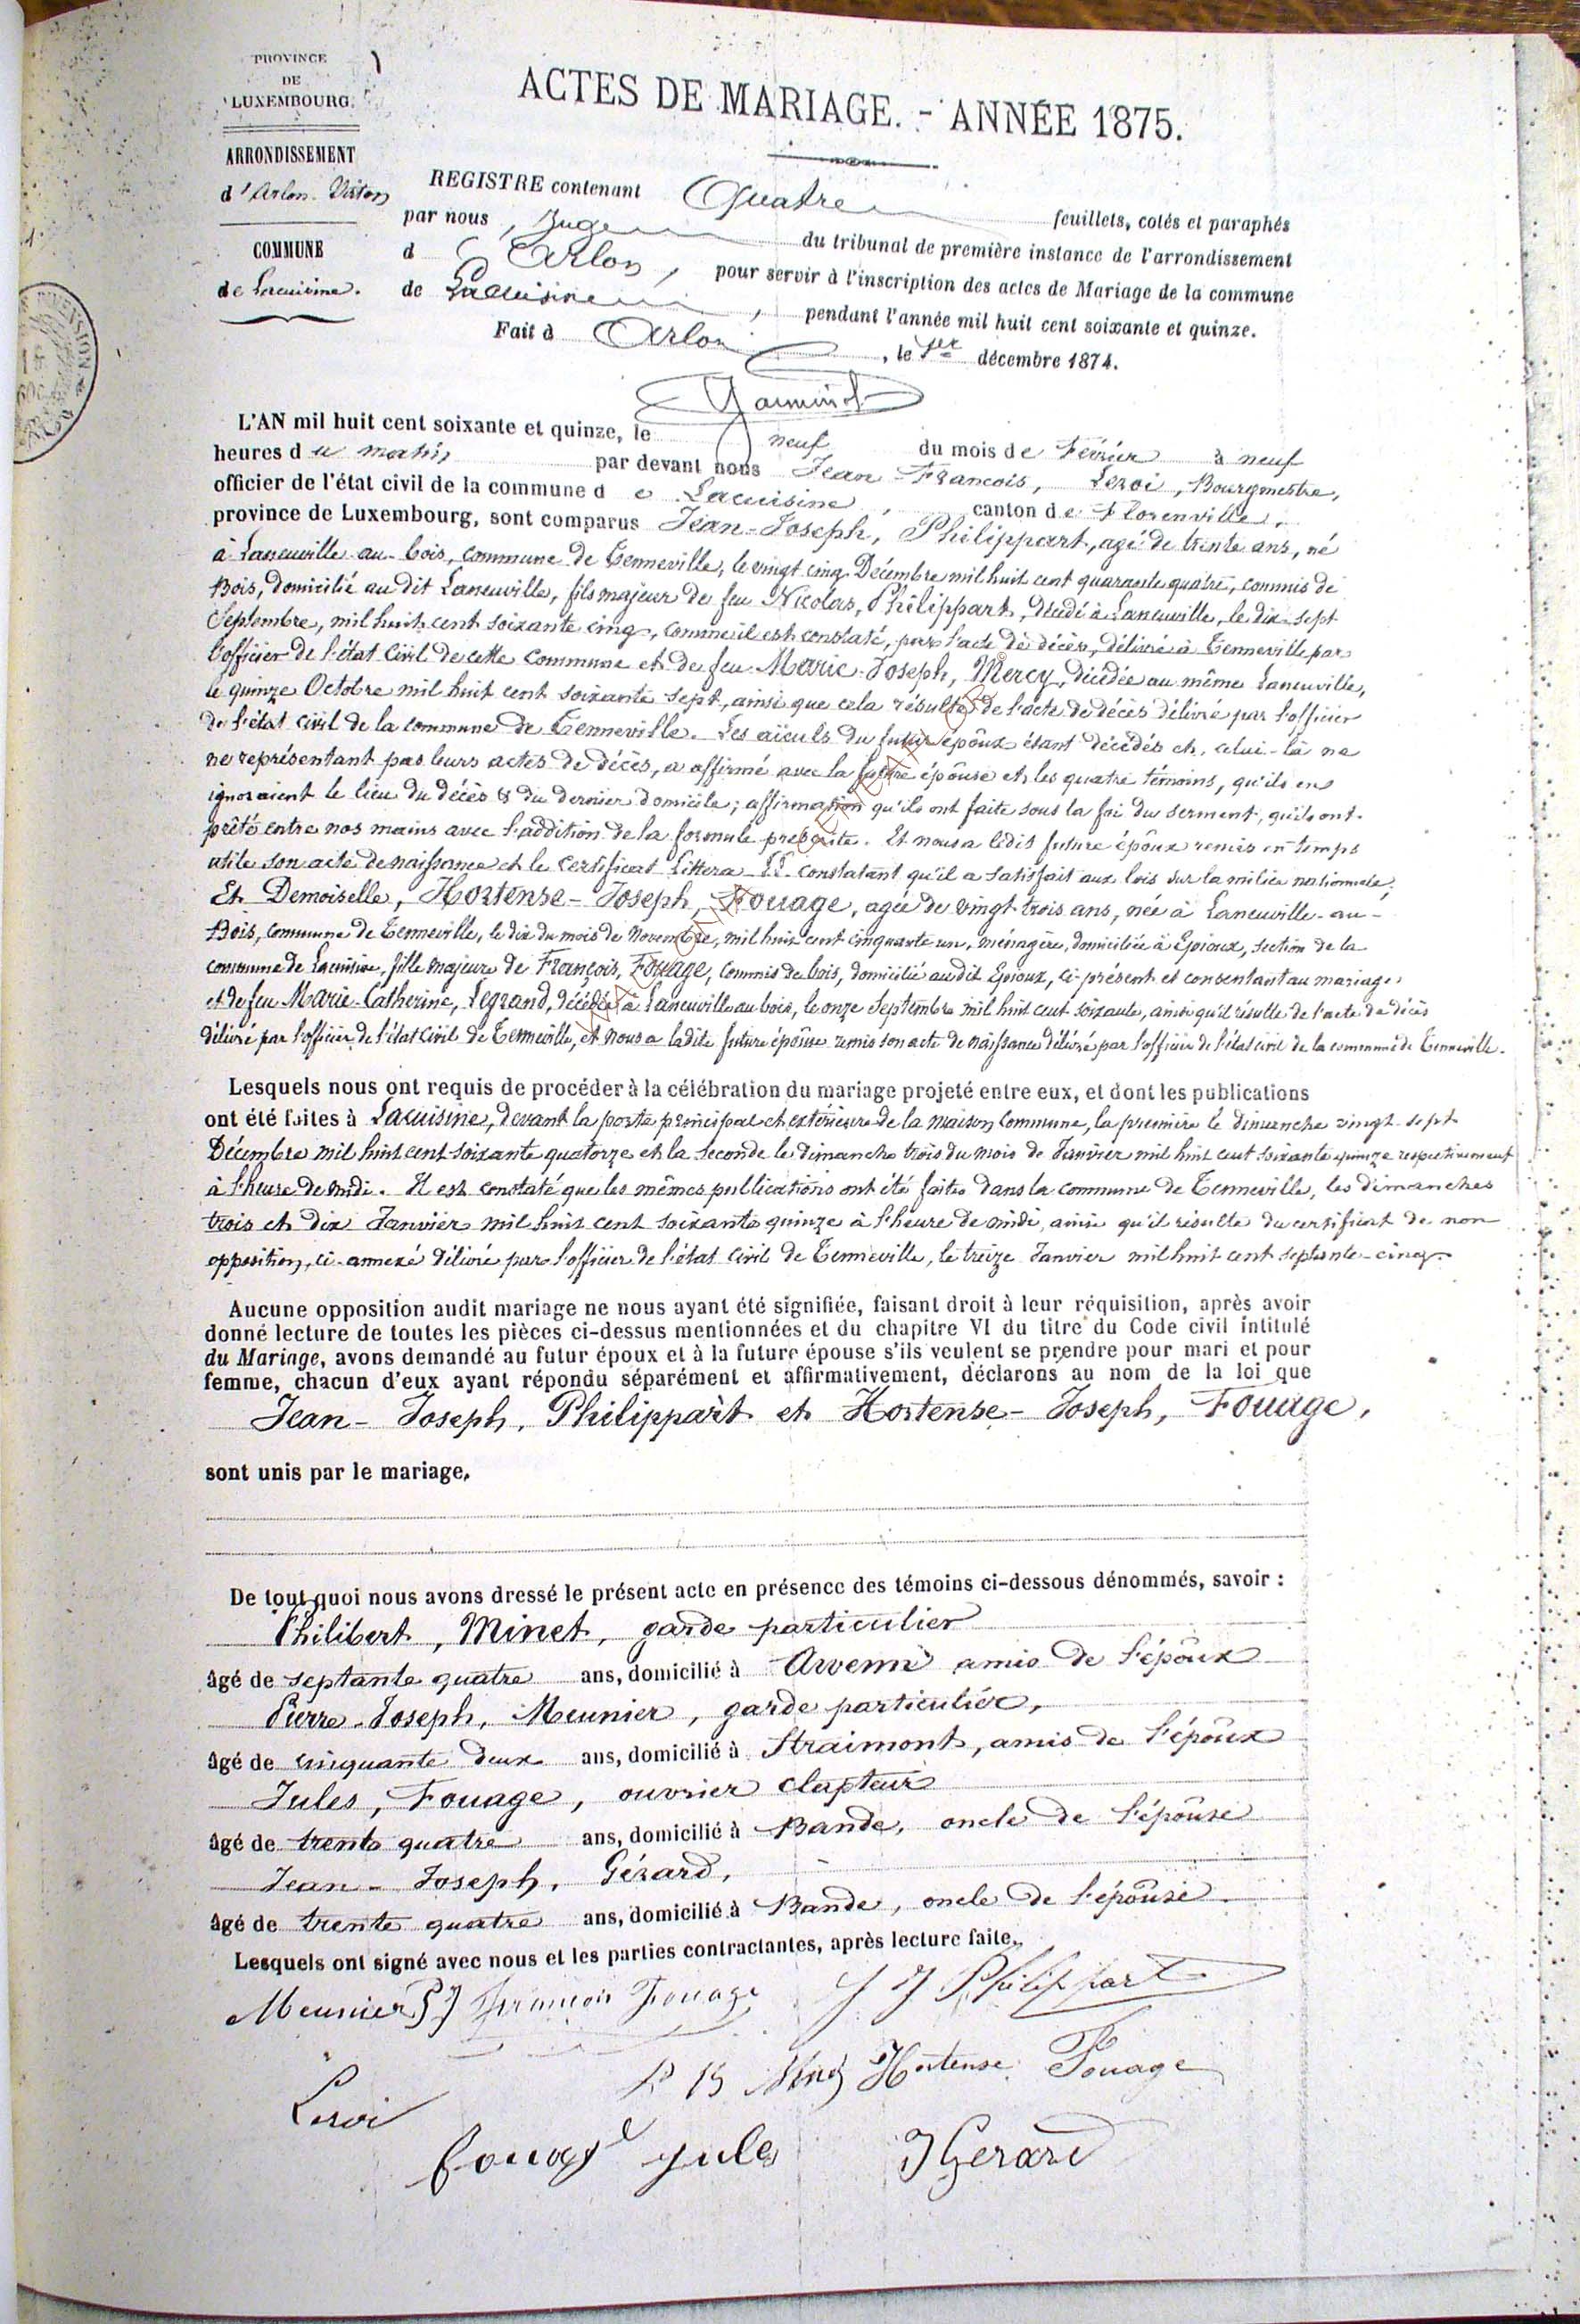 PROVINCE
DE
LUXEMBOURG.
ARRONDISSEMENT
d'Arlon-Virton
COMMUNE
de Lacuisine.
ACTES DE MARIAGE. - ANNÉE 1875.
REGISTRE contenant Quatre feuillets, cotés et paraphés
par nous, Juge du tribunal de première instance de l'arrondissement
d Arlon, pour servir à l'inscription des actes de Mariage de la commune
de Lacuisine, pendant l'année mil huit cent soixante et quinze.
Fait à Arlon, le 1er décembre 1874.
L'AN mil huit cent soixante et quinze, le neuf du mois de Février à neuf
heures du matin par devant nous Jean-François, Leroi, Bourgmestre,
officier de l'état civil de la commune de Lacuisine, canton de Florenville,
province de Luxembourg, sont comparus Jean-Joseph, Philippart, agé de trente ans, né
à Laneuville-au-bois, commune de Tenneville, le vingt cinq Décembre mil huit cent quarante quatre, commis de
Bois, domicilié au dit Laneuville, fils majeur de feu Nicolas, Philippart, décédé à Laneuville, le dix-sept
Septembre, mil huit cent soixante cinq, comme il est constaté, par l'acte de décès, délivré à Tenneville par
l'officier de l'état civil de cette commune et de feu Marie-Joseph, Mercy, décédée au même Laneuville,
le quinze Octobre mil huit cent soixante sept, ainsi que cela résulte de l'acte de décès délivré par l'officier
de l'état civil de la commune de Tenneville. Les aïeuls du futur époux étant décédés et, celui-là ne
ne représentant pas leurs actes de décès, a affirmé avec la future épouse et les quatre témoins, qu'ils en
ignoraient le lieu du décès & du dernier domicile; affirmation qu'ils ont faite sous la foi du serment, qu'ils ont
prêté entre nos mains avec l'addition de la formule prescrite. Et nous a ledit future époux remis en temps
utile son acte de naissance et le certificat Littera LL constatant qu'il a satisfait aux lois sur la milice nationale.
Et Demoiselle, Hortense-Joseph, Fouage, agée de vingt trois ans, née à Laneuville-au-
Bois, commune de Tenneville, le dix du mois de Novembre, mil huit cent cinquante un, ménagère, domiciliée à Epioux, section de la
commune de Lacuisine, fille majeure de François, Fouage, commis de bois, domicilié au dit Epioux, ci-présent et consentant au mariage
et de feu Marie-Catherine, Legrand, décédée à Laneuville au bois, le onze Septembre mil huit cent soixante, ainsi qu'il résulte de l'acte de décès
délivré par l'officier de l'état civil de Tenneville, et nous a ladite future épouse remis son acte de naissance délivré par l'officier de l'état civil de la commune de Tenneville.
Lesquels nous ont requis de procéder à la célébration du mariage projeté entre eux, et dont les publications
ont été faites à Lacuisine, devant la porte principal et extérieure de la maison commune, la première le dimanche vingt-sept
Décembre mil huit cent soixante quatorze et la seconde le dimanche trois du mois de Janvier mil huit cent soixante quinze respectivement
à l'heure de midi. Il est constaté que les mêmes publications ont été faites dans la commune de Tenneville, les dimanches
trois et dix Janvier mil huit cent soixante quinze à l'heure de midi, ainsi qu'il résulte du certificat de non
opposition, ci-annexé délivré par l'officier de l'état civil de Tenneville, le treize Janvier mil huit cent septante-cinq
Aucune opposition audit mariage ne nous ayant été signifiée, faisant droit à leur réquisition, après avoir
donné lecture de toutes les pièces ci-dessus mentionnées et du chapitre VI du titre du Code civil intitulé
du Mariage, avons demandé au futur époux et à la future épouse s'ils veulent se prendre pour mari et pour
femme, chacun d'eux ayant répondu séparément et affirmativement, déclarons au nom de la loi que
Jean-Joseph, Philippart et Hortense-Joseph, Fouage,
sont unis par le mariage.
De tout quoi nous avons dressé le présent acte en présence des témoins ci-dessous dénommés, savoir :
Philibert, Minet, garde particulier
âgé de septante quatre ans, domicilié à Awenne amis de l'époux
Pierre-Joseph, Meunier, garde particulier,
âgé de cinquante deux ans, domicilié à Straimont, amis de l'époux
Jules, Fouage, ouvrier clapteur
âgé de trente quatre ans, domicilié à Bande, oncle de l'épouse
Jean-Joseph, Gérard,
âgé de trente quatre ans, domicilié à Bande, oncle de l'épouse
Lesquels ont signé avec nous et les parties contractantes, après lecture faite.
Meunier PJ François Fouage J J Philippart
Hortense Fouage
Leroi
fouage jules J Gerard